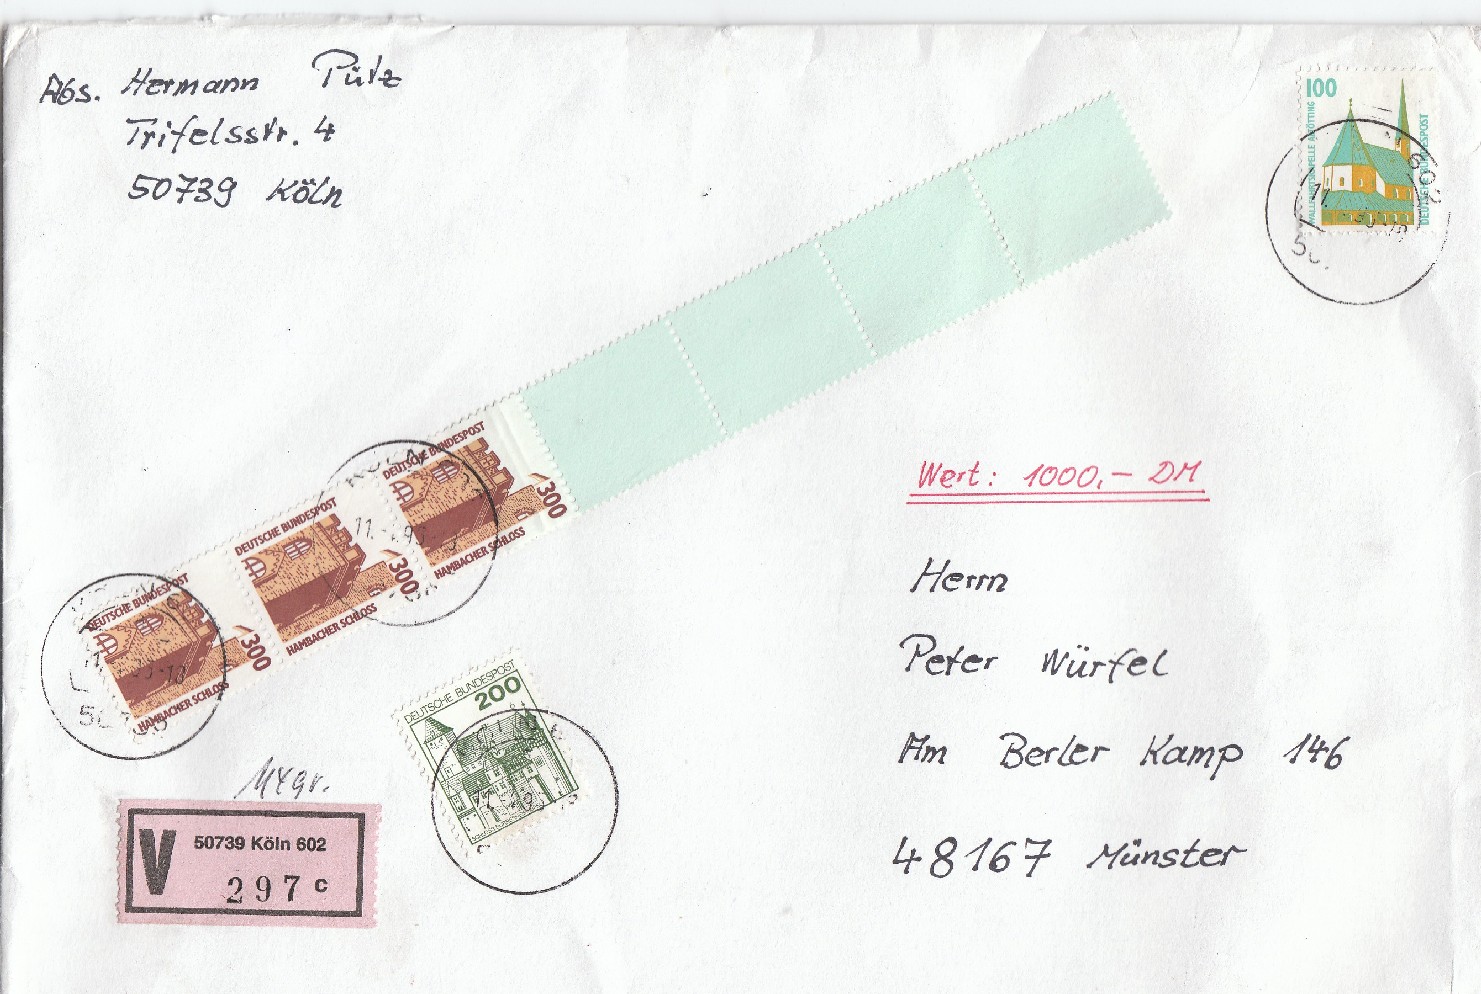 Abs. Hermann Pütz
Trifelsstr. 4
50739 Köln
100
WALLFAHRTSKAPELLE ALTÖTTING
DEUTSCHE BUNDESPOST
Wert: 1000,- DM
Herrn
Peter Würfel
Am Berler Kamp 146
48167 Münster
DEUTSCHE BUNDESPOST
300
HAMBACHER SCHLOSS
DEUTSCHE BUNDESPOST
300
HAMBACHER SCHLOSS
DEUTSCHE BUNDESPOST
300
HAMBACHER SCHLOSS
DEUTSCHE BUNDESPOST
200
V
50739 Köln 602
297 c